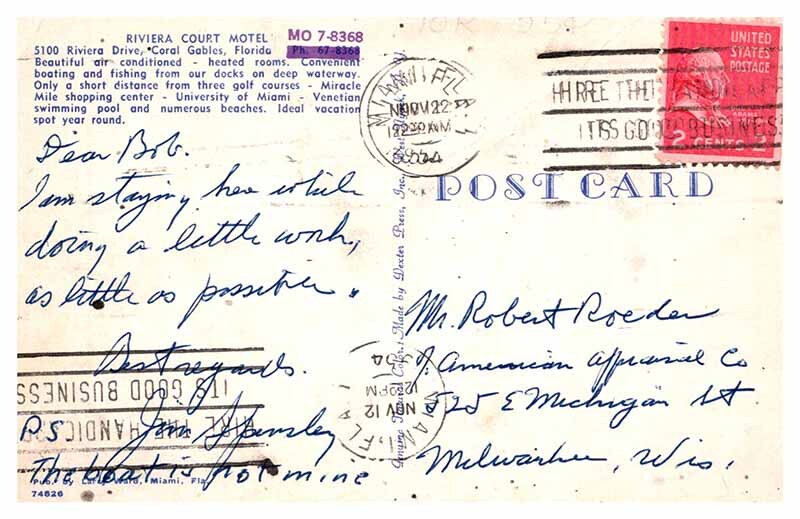 RIVIERA COURT MOTEL
MO 7-8368
5100 Riviera Drive, Coral Gables, Florida Ph. 67-8368
Beautiful air conditioned - heated rooms. Convenient
boating and fishing from our docks on deep waterway.
Only a short distance from three golf courses - Miracle
Mile shopping center - University of Miami - Venetian
swimming pool and numerous beaches. Ideal vacation
spot year round.
Dear Bob.
I am staying here while
doing a little work,
as little as possible.
Best regards.
Jim
P.S.
The boat is not mine
Pub. by Larry Ward, Miami, Fla.
74826
Genuine Natural Color. Made by Dexter Press, Inc.
MIAMI, FLA.
NOV 12
1954
UNITED
STATES
POSTAGE
2 CENTS 2
HIRE THE HANDICAPPED
IT'S GOOD BUSINESS
POST CARD
Mr. Robert Roeder
American Appraisal Co
525 E Michigan St
Milwaukee, Wis.
MIAMI, FLA.
NOV 12
12 PM
1954
HIRE THE HANDIC
IT'S GOOD BUSINESS